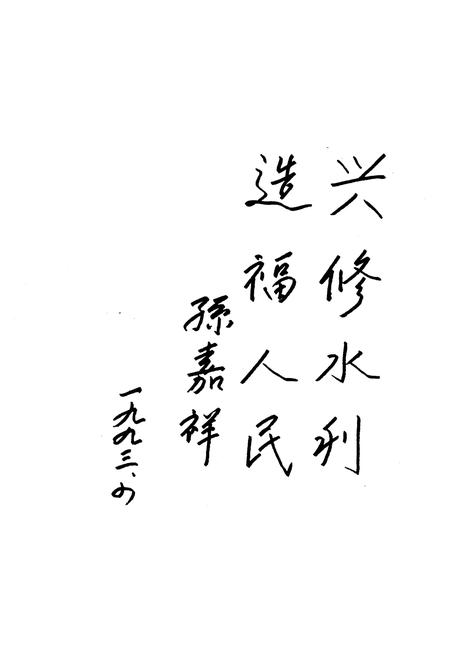 兴修水利
造福人民
孫嘉祥
一九九三.四